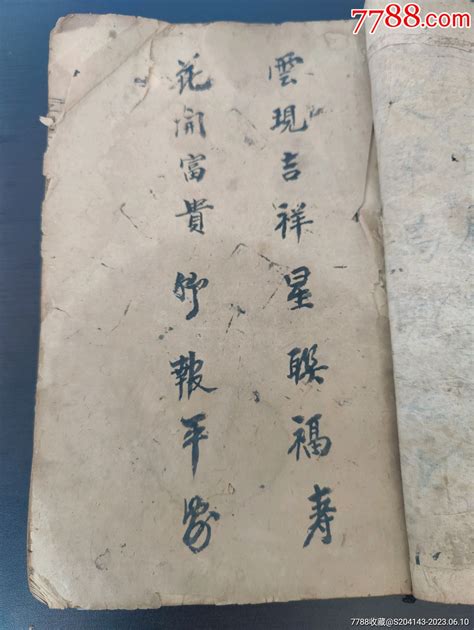 7788.com
中国收藏热线
雲現吉祥星聯福寿
花開富貴竹報平安
7788收藏@S204143-2023.06.10